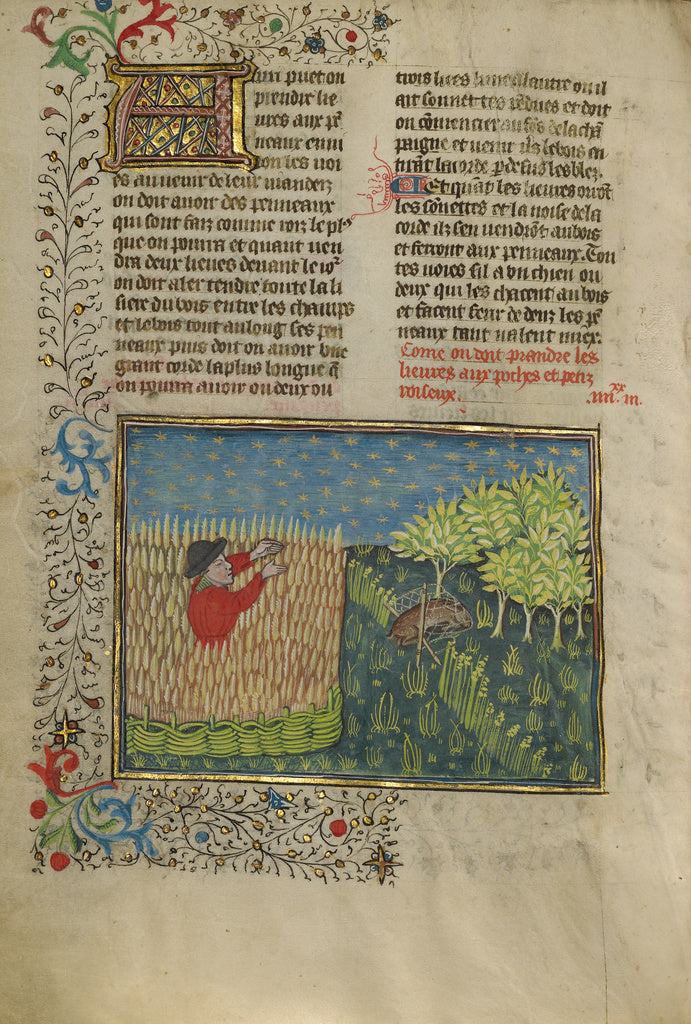 Aussi puet on
prendre lie
ures aux pē
neaux enui
ron les uoi
es au uenir de leur manders
on doit auoir des penneaux
qui sont faiz comme rois le plꝰ
que on pourra et quant uen
dra deux lieues deuant le ioꝛ
on doit aler tendre toute la li
siere du bois entre les champs
et le bois tout au long ses pen
neaux puis doit on auoir une
grant corde la plus longue q̄
on pourra auoir ou deux ou
trois liees lune a lautre ou il
ait sonnettes pēdues et doit
on cōmencier au fōs de la chā
paigne et uenir uers le bois en
tirāt la corde p̱ dessus les blez.
Et quāt les lieures orrōt
les sōnettes et la noise de la
corde ilz sen uendrōt au bois
et ferront aux penneaux. Tou
tes uoies sil a un chien ou
deux qui les chacent au bois
et facent peur de deuz les pē
neaux tant ualent miex.
Come on doit prandre les
lieures aux poches et petiz
roiseux. .iiii.xx iii.